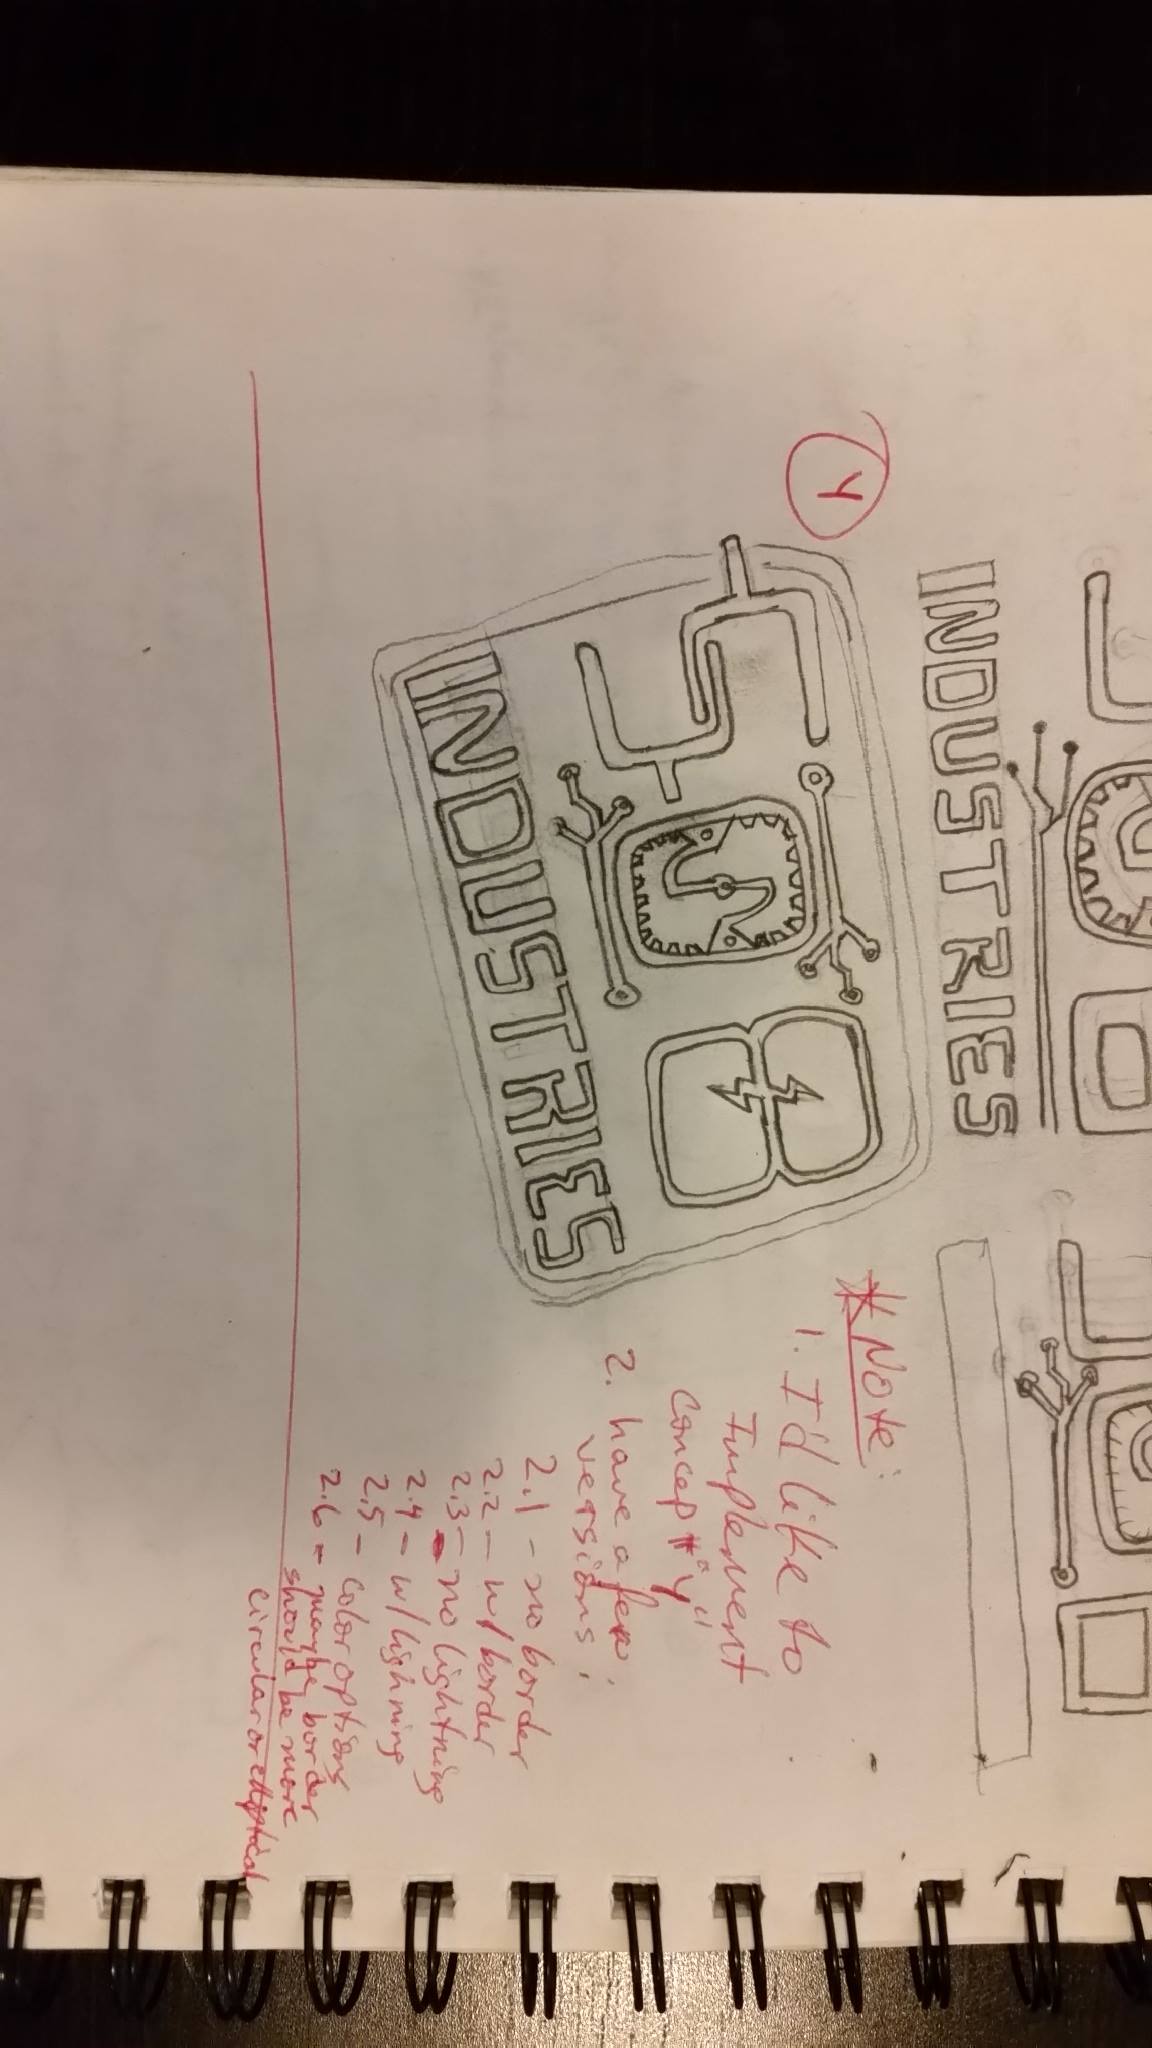 INDUSTRIES
4
INDUSTRIES
* Note:
1. I'd like to
Implement
concept "4"
2. have a few
versions:
2.1 - no border
2.2 - w/border
2.3 - no lightning
2.4 - w/lighning
2.5 - color options
2.6 - maybe border
should be more
circular or elliptical